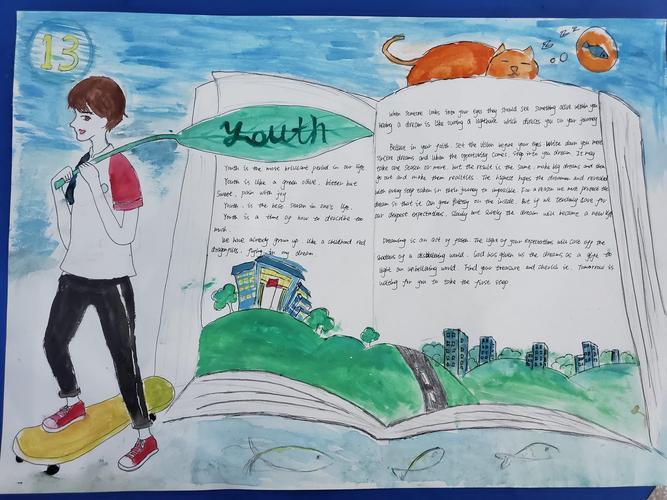 13
Youth
Youth is the most brilliant period in our life.
Youth is like a green olive, bitter but
sweet, pain with joy
Youth, is the best season in one's life.
Youth is a time of how to describe too
much.
We have already grown up, like a childhood red
dragonflies, flying in my dream.
z z z
When someone looks into your eyes they should see something alive within you
Having a dream is like having a lighthouse which directs you on your journey.
Believe in your faith. Set the vision before your eyes. Write down you most
dreams and when the opportunity comes, step into you dream. It may
take one season or more but the result is the same. make big dreams and then
go out and make them realities. The highest hopes the dreamer and revealed
with every step taken in their journey to impossible. For a reason we must protect the
dream so that it can grow on the inside. But if we tenderly care for
our deepest expectations, slowly but surely the dream will become a new life
Dreaming is an act of faith. The light of your expectations will cast off the
shadows of a disbelieving world. God has given us the dreams as a gift to
light an unbelieving world. Find your treasure and cherish it. Tomorrow is
waiting for you to take the first step